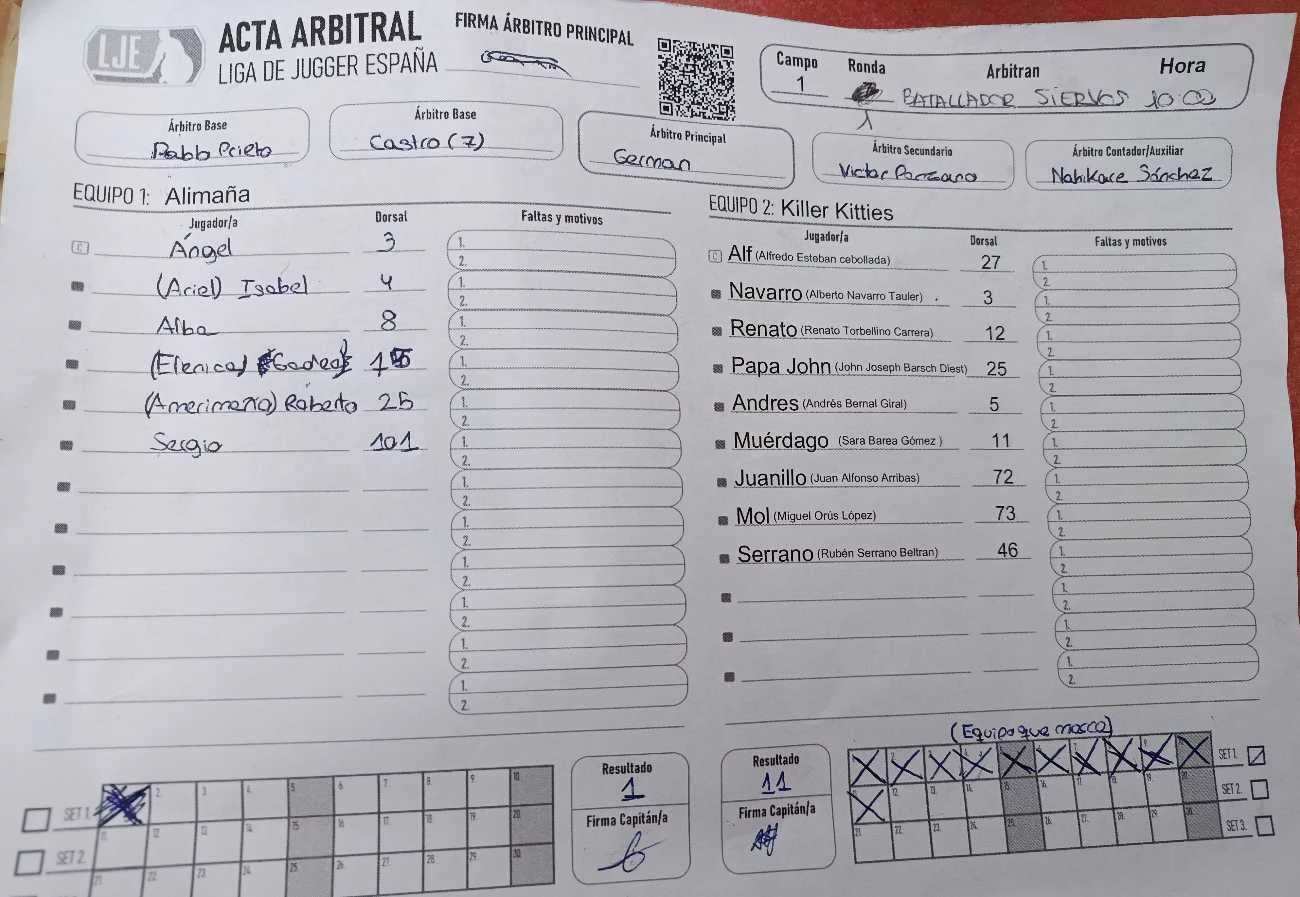 LJE
ACTA ARBITRAL
LIGA DE JUGGER ESPAÑA
FIRMA ÁRBITRO PRINCIPAL
Campo Ronda Arbitran Hora
1 BATALLADOR SIERVOS 10:00
1
Árbitro Base
Pablo Prieto
Árbitro Base
Castro (7)
Árbitro Principal
German
Árbitro Secundario
Victor Panzano
Árbitro Contador/Auxiliar
Nahikare Sánchez
EQUIPO 1: Alimaña
Jugador/a Dorsal Faltas y motivos
C Ángel 3 1.
2.
(Ariel) Isabel 4 1.
2.
Alba 8 1.
2.
(Elenica) Gadea 1.
2.
(Amerimaña) Roberto 25 1.
2.
Sergio 101 1.
2.
1.
2.
1.
2.
1.
2.
1.
2.
1.
2.
1.
2.
EQUIPO 2: Killer Kitties
Jugador/a Dorsal Faltas y motivos
C Alf (Alfredo Esteban cebollada) 27 1.
2.
Navarro (Alberto Navarro Tauler) . 3 1.
2.
Renato (Renato Torbellino Carrera) 12 1.
2.
Papa John (John Joseph Barsch Diest) 25 1.
2.
Andres (Andrés Bernal Giral) 5 1.
2.
Muérdago (Sara Barea Gómez ) 11 1.
2.
Juanillo (Juan Alfonso Arribas) 72 1.
2.
Mol (Miguel Orús López) 73 1.
2.
Serrano (Rubén Serrano Beltran) 46 1.
2.
1.
2.
1.
2.
1.
2.
SET 1. 2. 3. 4. 5. 6. 7. 8. 9. 10.
SET 2. 11. 12. 13. 14. 15. 16. 17. 18. 19. 20.
21. 22. 23. 24. 25. 26. 27. 28. 29. 30.
Resultado
1
Firma Capitán/a
Resultado
11
Firma Capitán/a
(Equipo que marca)
SET 1.
12. 13. 14. 15. 16. 17. 18. 19. 20. SET 2.
21. 22. 23. 24. 25. 26. 27. 28. 29. 30. SET 3.